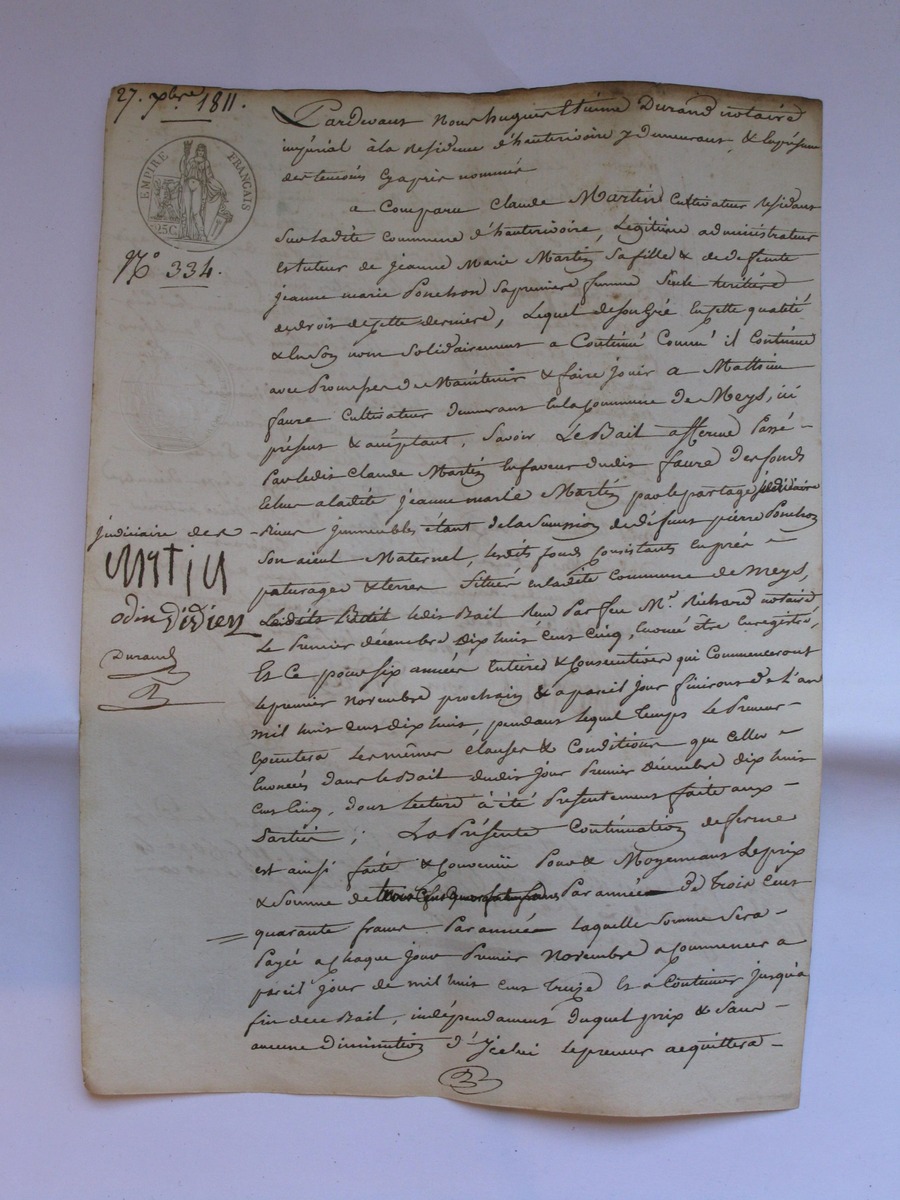 27. xbre 1811.
EMPIRE FRANÇAIS
25 C.
N.º 334.
Pardevant Nous hugues Etienne Durand notaire
impérial à la residence d'hauterivoire y demeurant, & en présence
des temoins cy après nommés
a Comparu Claude Martin Cultivateur residant
sur ladite Commune d'hauterivoire, Legitime administrateur
et tuteur de jeanne Marie Martin sa fille & de defunte
jeanne marie Ponchon sa premiere femme seule heritiere
de droit de cette derniere, Lequel de son gré en cette qualité
& en son nom solidairement a Continué Comme il Continue
avec Promesse de Maintenir & faire jouir a Mathieu
faure Cultivateur demeurant en la Commune de Meys, ici
présent & acceptant, Savoir Le Bail a fferme Passé
Par ledit Claude Martin en faveur dudit faure des fonds
echus a ladite jeanne marie Martin par le partage judiciaire
judiciaire des
-rieur immeubles étant de la succession de défunt pierre Ponchon
son aieul Maternel, lesdits fonds Consistants en prés
paturages & terres situés en ladite Commune de Meys,
ledit Bail Reçu Par feu Me. Richard notaire
Le Premier décembre dix huit Cent Cinq, enoncé être Enregistré,
Et Ce pour six années entieres & Consecutives qui Commenceront
le premier Novembre prochain & a pareil jour finiront de l'an
mil huit Cent dix huit, pendant lequel Temps Le Preneur
Executera Les mêmes Clauses & Conditions que Celles
Enoncées dans le Bail dudit jour Premier Décembre dix huit
Cent Cinq, dont Lecture à été Presentement faite aux
Parties; La Présente Continuation de ferme
est ainsi faite & Convenue Pour & Moyennant Le prix
& Somme de trois Cent quarante francs Par année de Trois Cent
quarante francs Par année laquelle Somme Sera
Payée a Chaque jour Premier Novembre a Commencer a
pareil jour de mil huit Cent Treize Et a Continuer jusqu'a
fin de ce Bail, indépendament duquel prix & Sans
aucune Diminution d'Icelui Le preneur acquittera
Martin
odin Didier
Durand